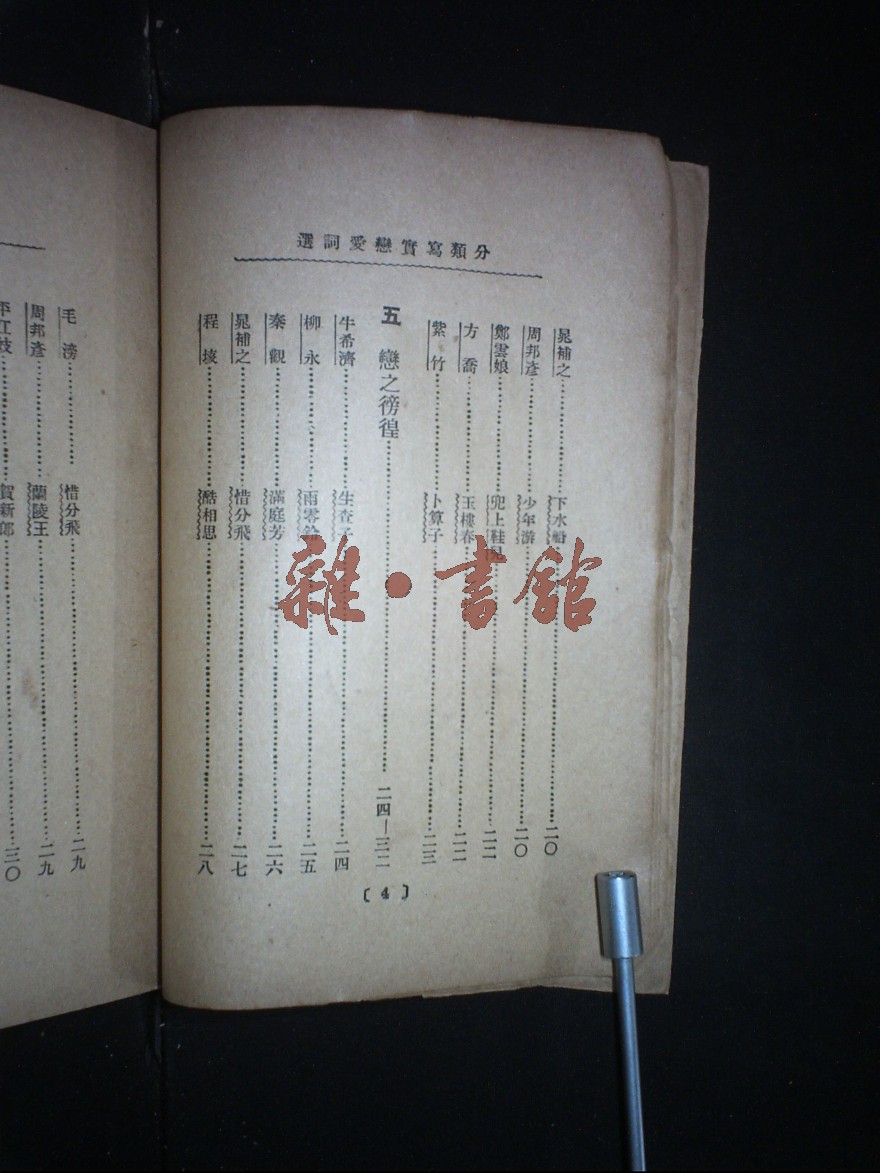 分類寫實戀愛詞選
晁補之 下水船 二〇
周邦彥 少年游 二〇
鄭雲娘 兜上鞋兒 二二
方喬 玉樓春 二二
紫竹 卜算子 二三
五 戀之徬徨 二四—三二
牛希濟 生查子 二四
柳永 雨零鈴 二五
秦觀 滿庭芳 二六
晁補之 惜分飛 二七
程垓 酷相思 二八
〔4〕
毛滂 惜分飛 二九
周邦彥 蘭陵王 二九
平江妓 賀新郎 三〇
雜·書館